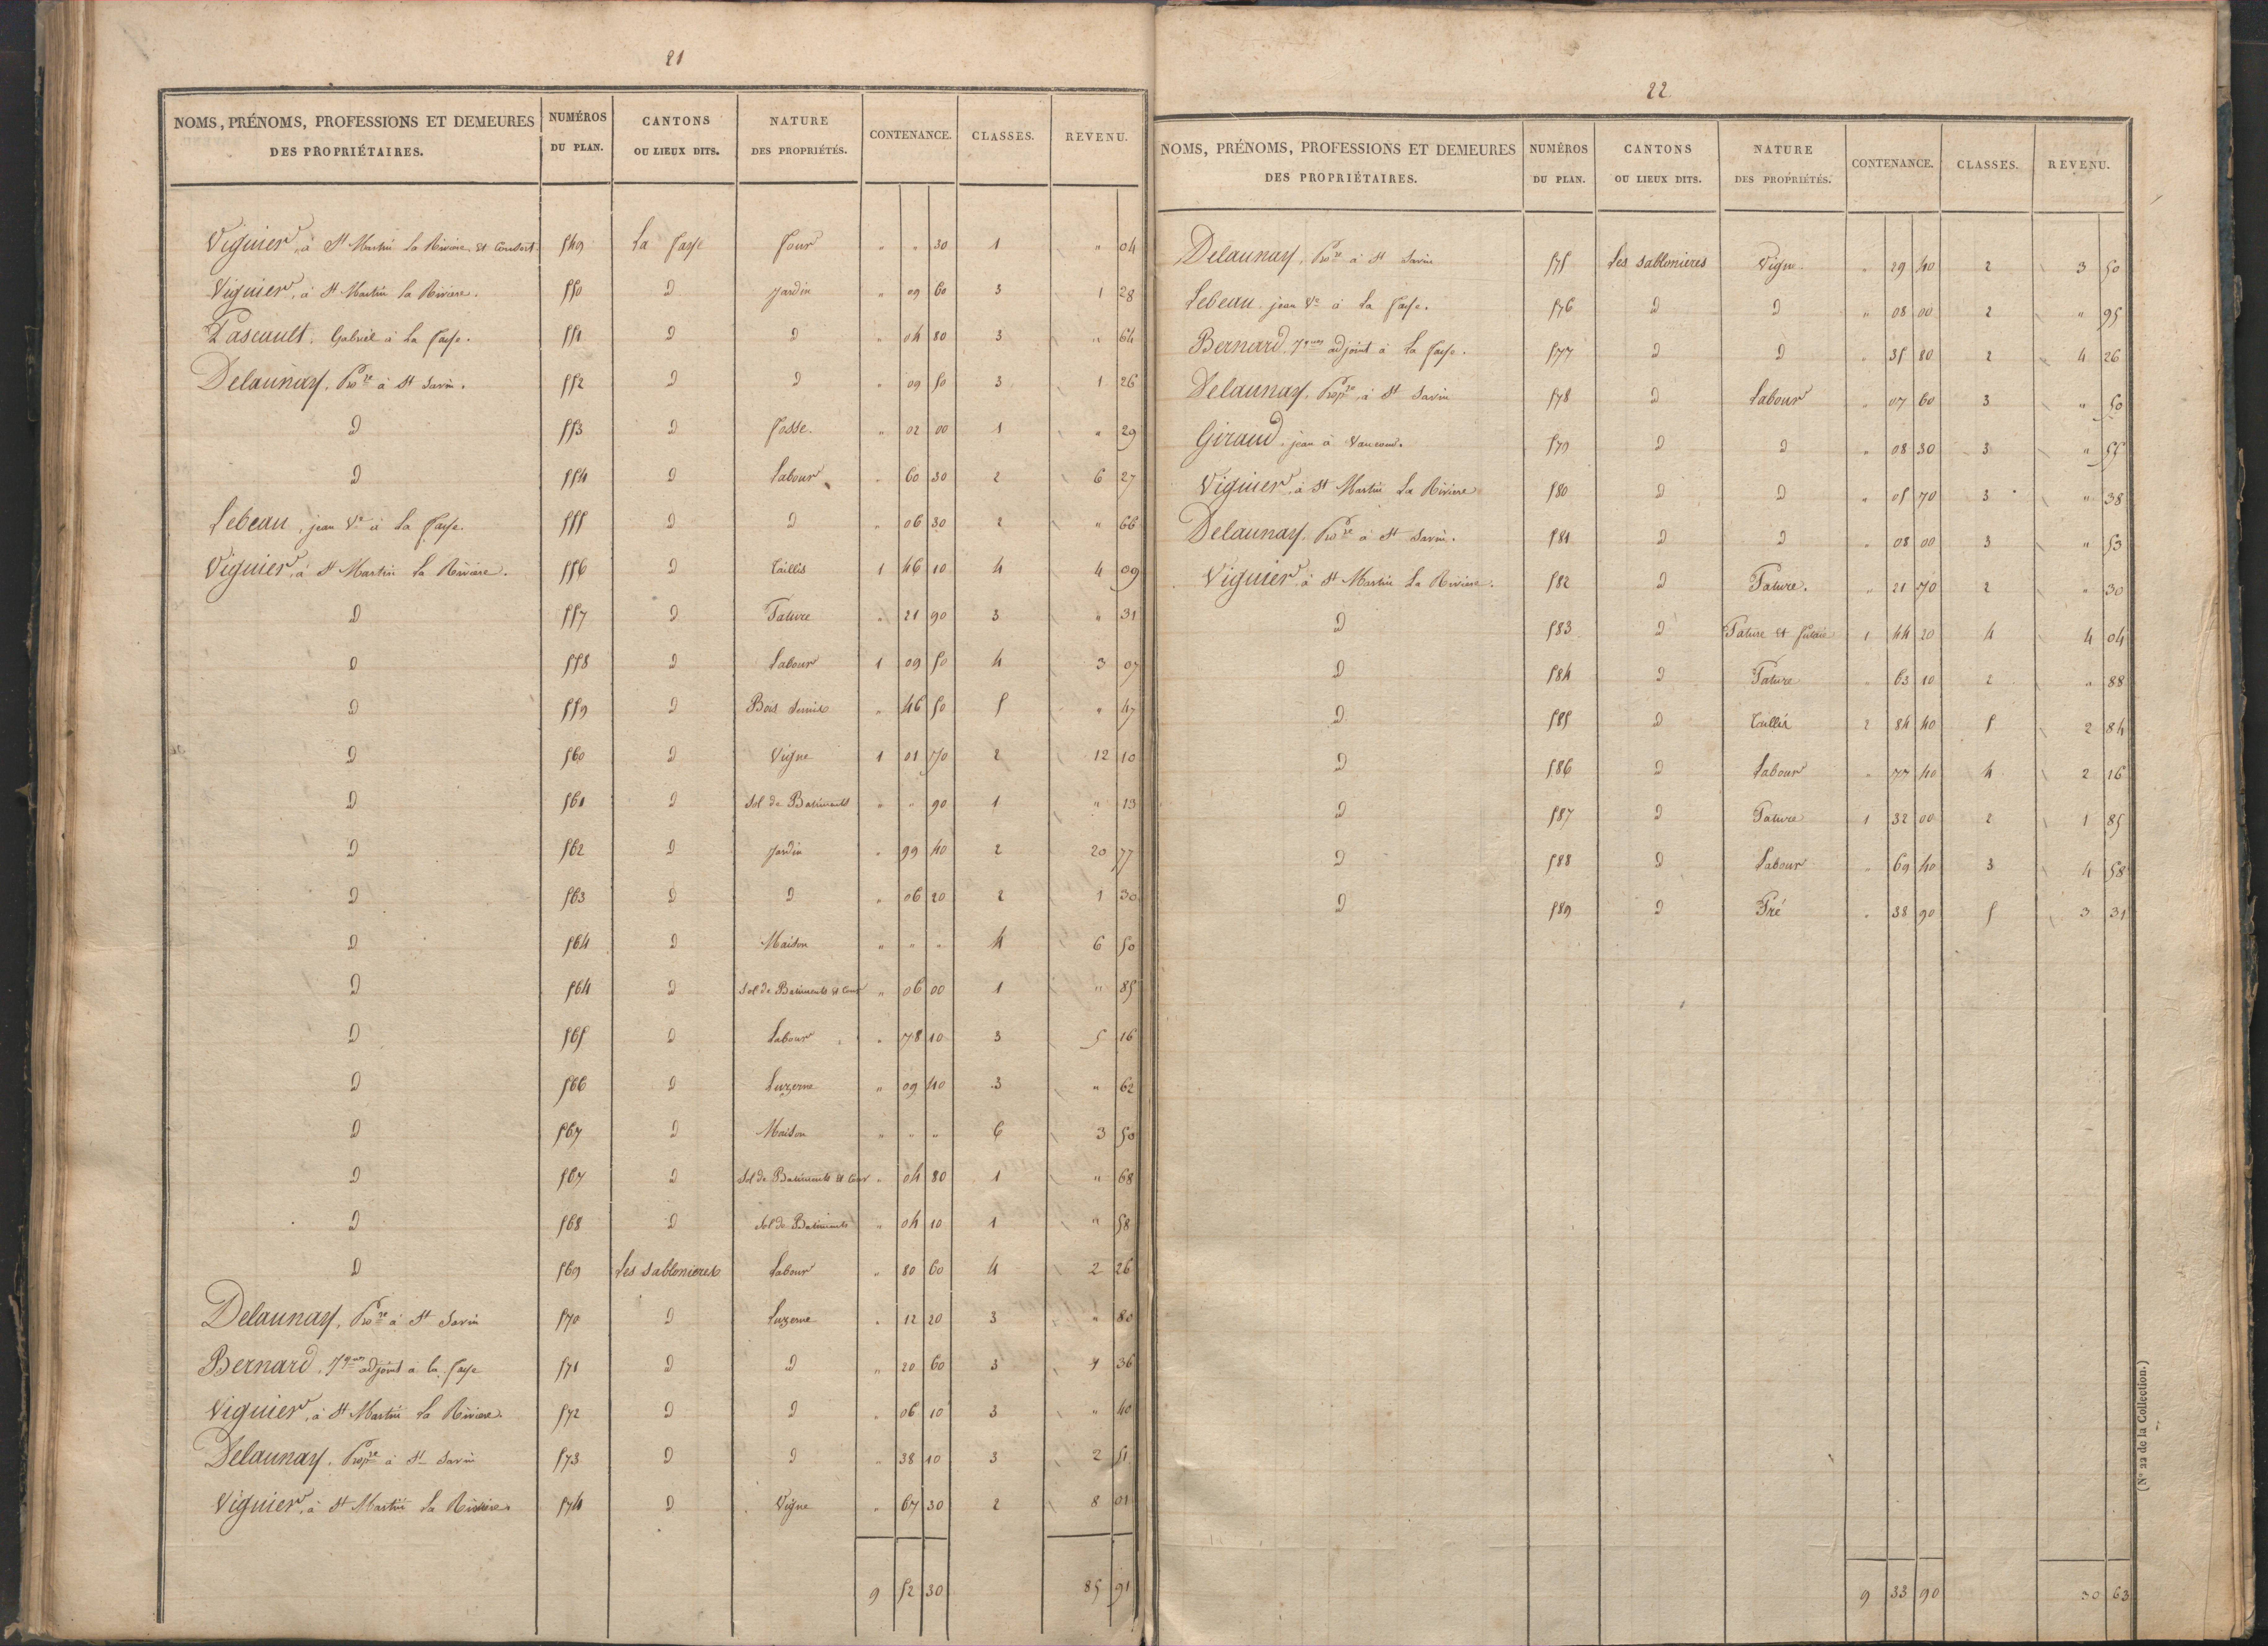 21
NOMS, PRÉNOMS, PROFESSIONS ET DEMEURES DES PROPRIÉTAIRES. NUMÉROS DU PLAN. CANTONS OU LIEUX DITS. NATURE DES PROPRIÉTÉS. CONTENANCE. CLASSES. REVENU.
Viguier, à St Martin la Rivière et Consort 549 la faye four " " 30 1 " 04
Viguier, à St Martin la Riviere. 550 D jardin " 09 60 3 1 28
Pascault, Gabriel à la faye. 551 D D " 04 80 3 " 64
Delaunay, Pro re à St Savin. 552 D D " 09 50 3 1 26
D 553 D fosse. " 02 00 1 " 29
D 554 D labour " 60 30 2 6 27
Lebeau, jean Ve à la faye. 555 D D " 06 30 2 " 66
Viguier, à St Martin la Rivière. 556 D taillis 1 46 10 4 4 09
D 557 D Pature " 21 90 3 " 31
D 558 D labour 1 09 50 4 3 07
D 559 D Bois semis " 46 50 5 " 47
D 560 D Vigne 1 01 70 2 12 10
D 561 D sol de Batiments " " 90 1 " 13
D 562 D jardin " 99 40 2 20 77
D 563 D D " 06 20 2 1 30
D 564 D Maison " " " 4 6 50
D 564 D sol de Batiments et Cour " 06 00 1 " 85
D 565 D labour " 78 10 3 5 16
D 566 D luzerne " 09 40 3 " 62
D 567 D Maison " " " 6 3 50
D 567 D sol de Batiments et Cour " 04 80 1 " 68
D 568 D sol de Batiments " 04 10 1 " 58
D 569 les sablonieres labour " 80 60 4 2 26
Delaunay, Pro re à St Savin 570 D luzerne " 12 20 3 " 80
Bernard, Jques adjoint a la faye 571 D D " 20 60 3 1 36
Viguier, à St Martin la Riviere. 572 D D " 06 10 3 " 40
Delaunay, Prop re à St Savin 573 D D " 38 10 3 2 51
Viguier, à St Martin la Riviere. 574 D Vigne " 67 30 2 8 01
9 52 30 85 91
22
NOMS, PRÉNOMS, PROFESSIONS ET DEMEURES DES PROPRIÉTAIRES. NUMÉROS DU PLAN. CANTONS OU LIEUX DITS. NATURE DES PROPRIÉTÉS. CONTENANCE. CLASSES. REVENU.
Delaunay, Pro re à St Savin 575 les sablonieres Vigne " 29 40 2 3 50
Lebeau jean Ve à la faye. 576 D D " 08 00 2 " 95
Bernard, Jques adjoint à la faye. 577 D D " 35 80 2 4 26
Delaunay, Prop re à St Savin 578 D labour " 07 60 3 " 50
Giraud, jean à 579 D D " 08 30 3 " 55
Viguier, à St Martin la Riviere 580 D D " 05 70 3 " 38
Delaunay, Pro re à St Savin. 581 D D " 08 00 3 " 53
Viguier, à St Martin la Riviere. 582 D Pature. " 21 70 2 " 30
D 583 D Pature et futaie 1 44 20 4 4 04
D 584 D Pature " 63 10 2 " 88
D 585 D taillis 2 84 40 5 2 84
D 586 D labour " 77 40 4 2 16
D 587 D Pature 1 32 00 2 1 85
D 588 D labour " 69 40 3 4 58
D 589 D Pré " 38 90 5 3 31
9 33 90 30 63
(N° 22 de la Collection.)